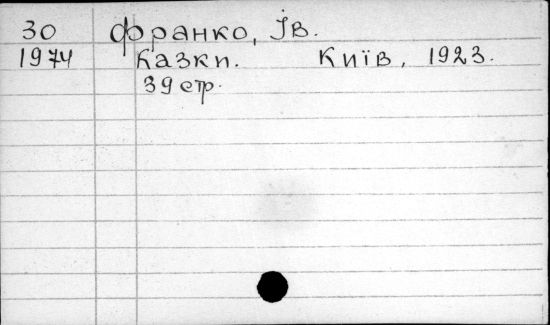 30 Франко, Ів.
1974 Казки. Київ, 1923.
39 стр.